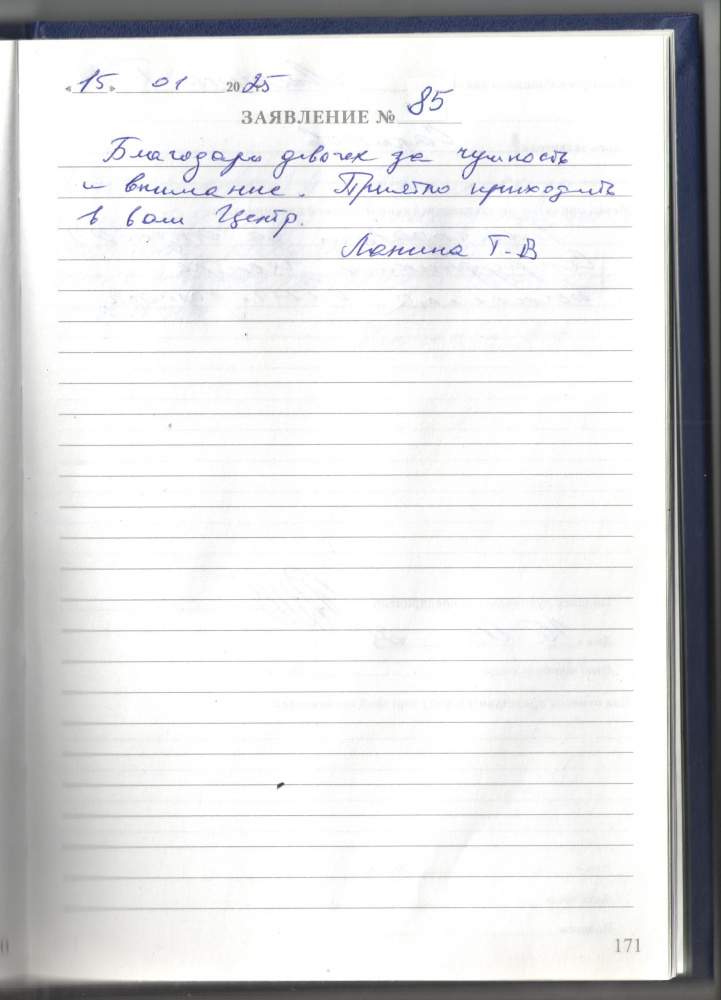 « 15 » 01 2025
ЗАЯВЛЕНИЕ № 85
Благодарю девочек за чуткость
и внимание. Приятно приходить
в ваш Центр.
Ланина Т.В
171